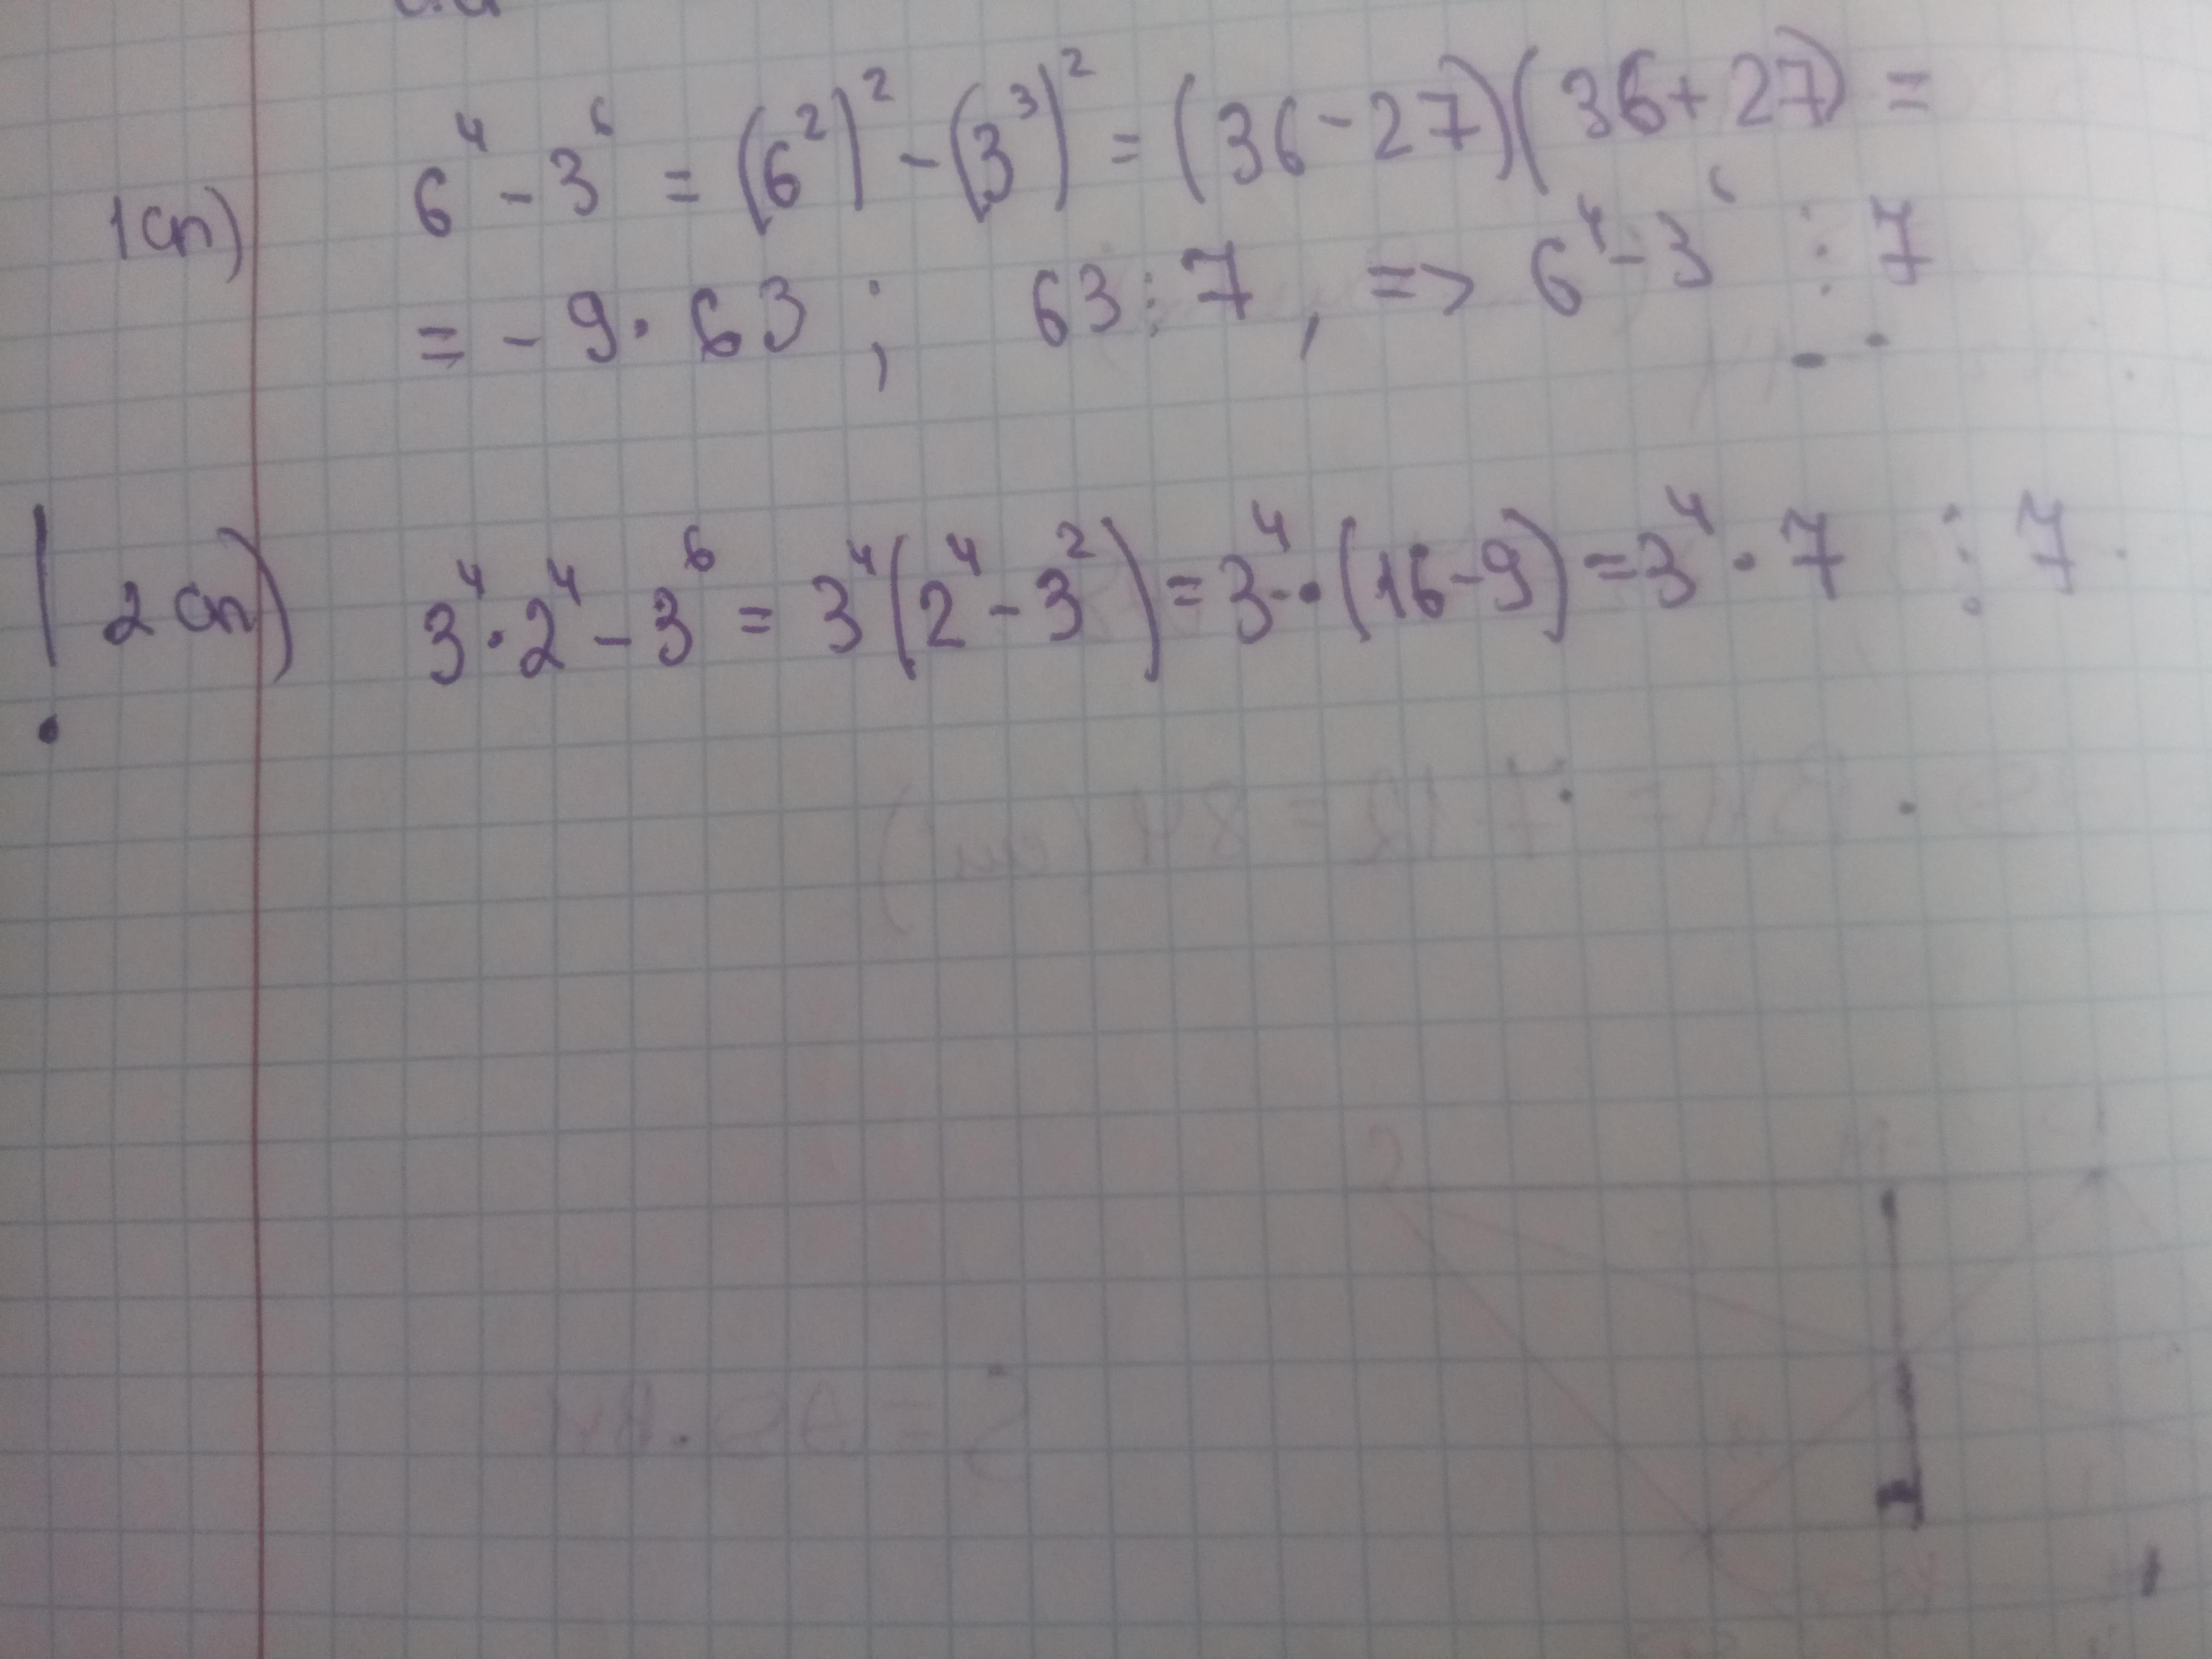 1 сп) 6⁴ - 3⁶ = (6²)² - (3³)² = (36 - 27)(36 + 27) =
= - 9 · 63 ; 63 ⋮ 7 , => 6⁴ - 3⁶ ⋮ 7
! 2 сп) 3⁴ · 2⁴ - 3⁶ = 3⁴(2⁴ - 3²) = 3⁴ · (16 - 9) = 3⁴ · 7 ⋮ 7.